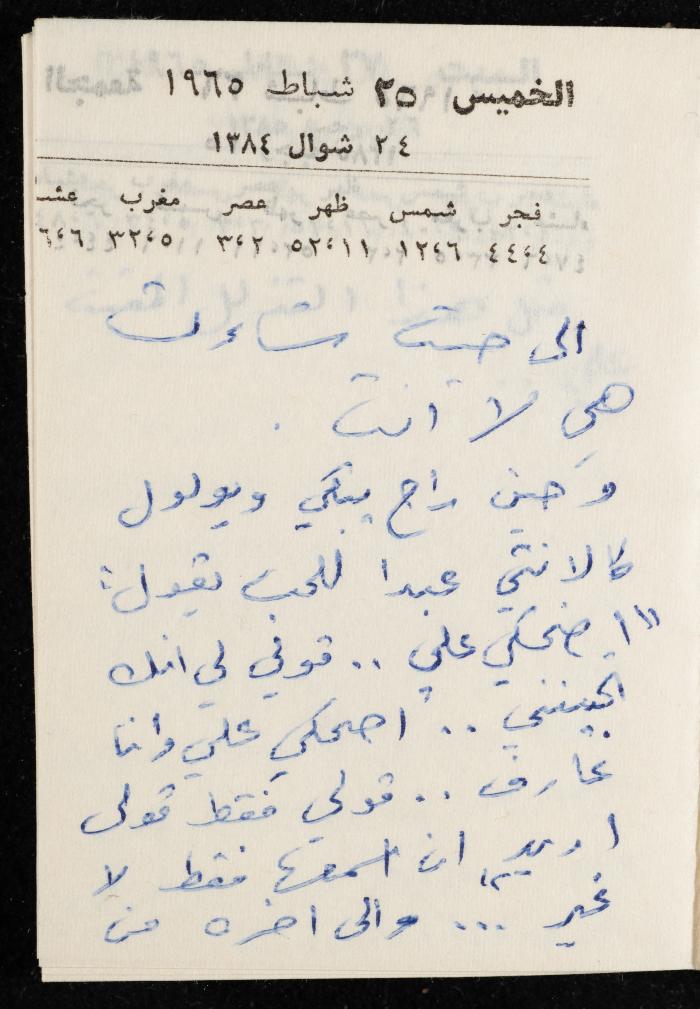 الخميس ٢٥ شباط ١٩٦٥
٢٤ شوال ١٣٨٤
فجر شمس ظهر عصر مغرب عشا
٤،٤٤ ٦،١٢ ١١،٥٢ ٣،٢ ٥،٣٢ ٦،٤٦
الى حيث شاءت
هي لا انت .
وحين راح يبكي ويولول
كالانثى عبدا للحب يقول :
"اضحكي علي .. قولي لي انك
تحبينني .. اضحكي علي وانا
عارف .. قولي فقط قولي
اريد ان اسمعها فقط لا
غير ... والى اخره من